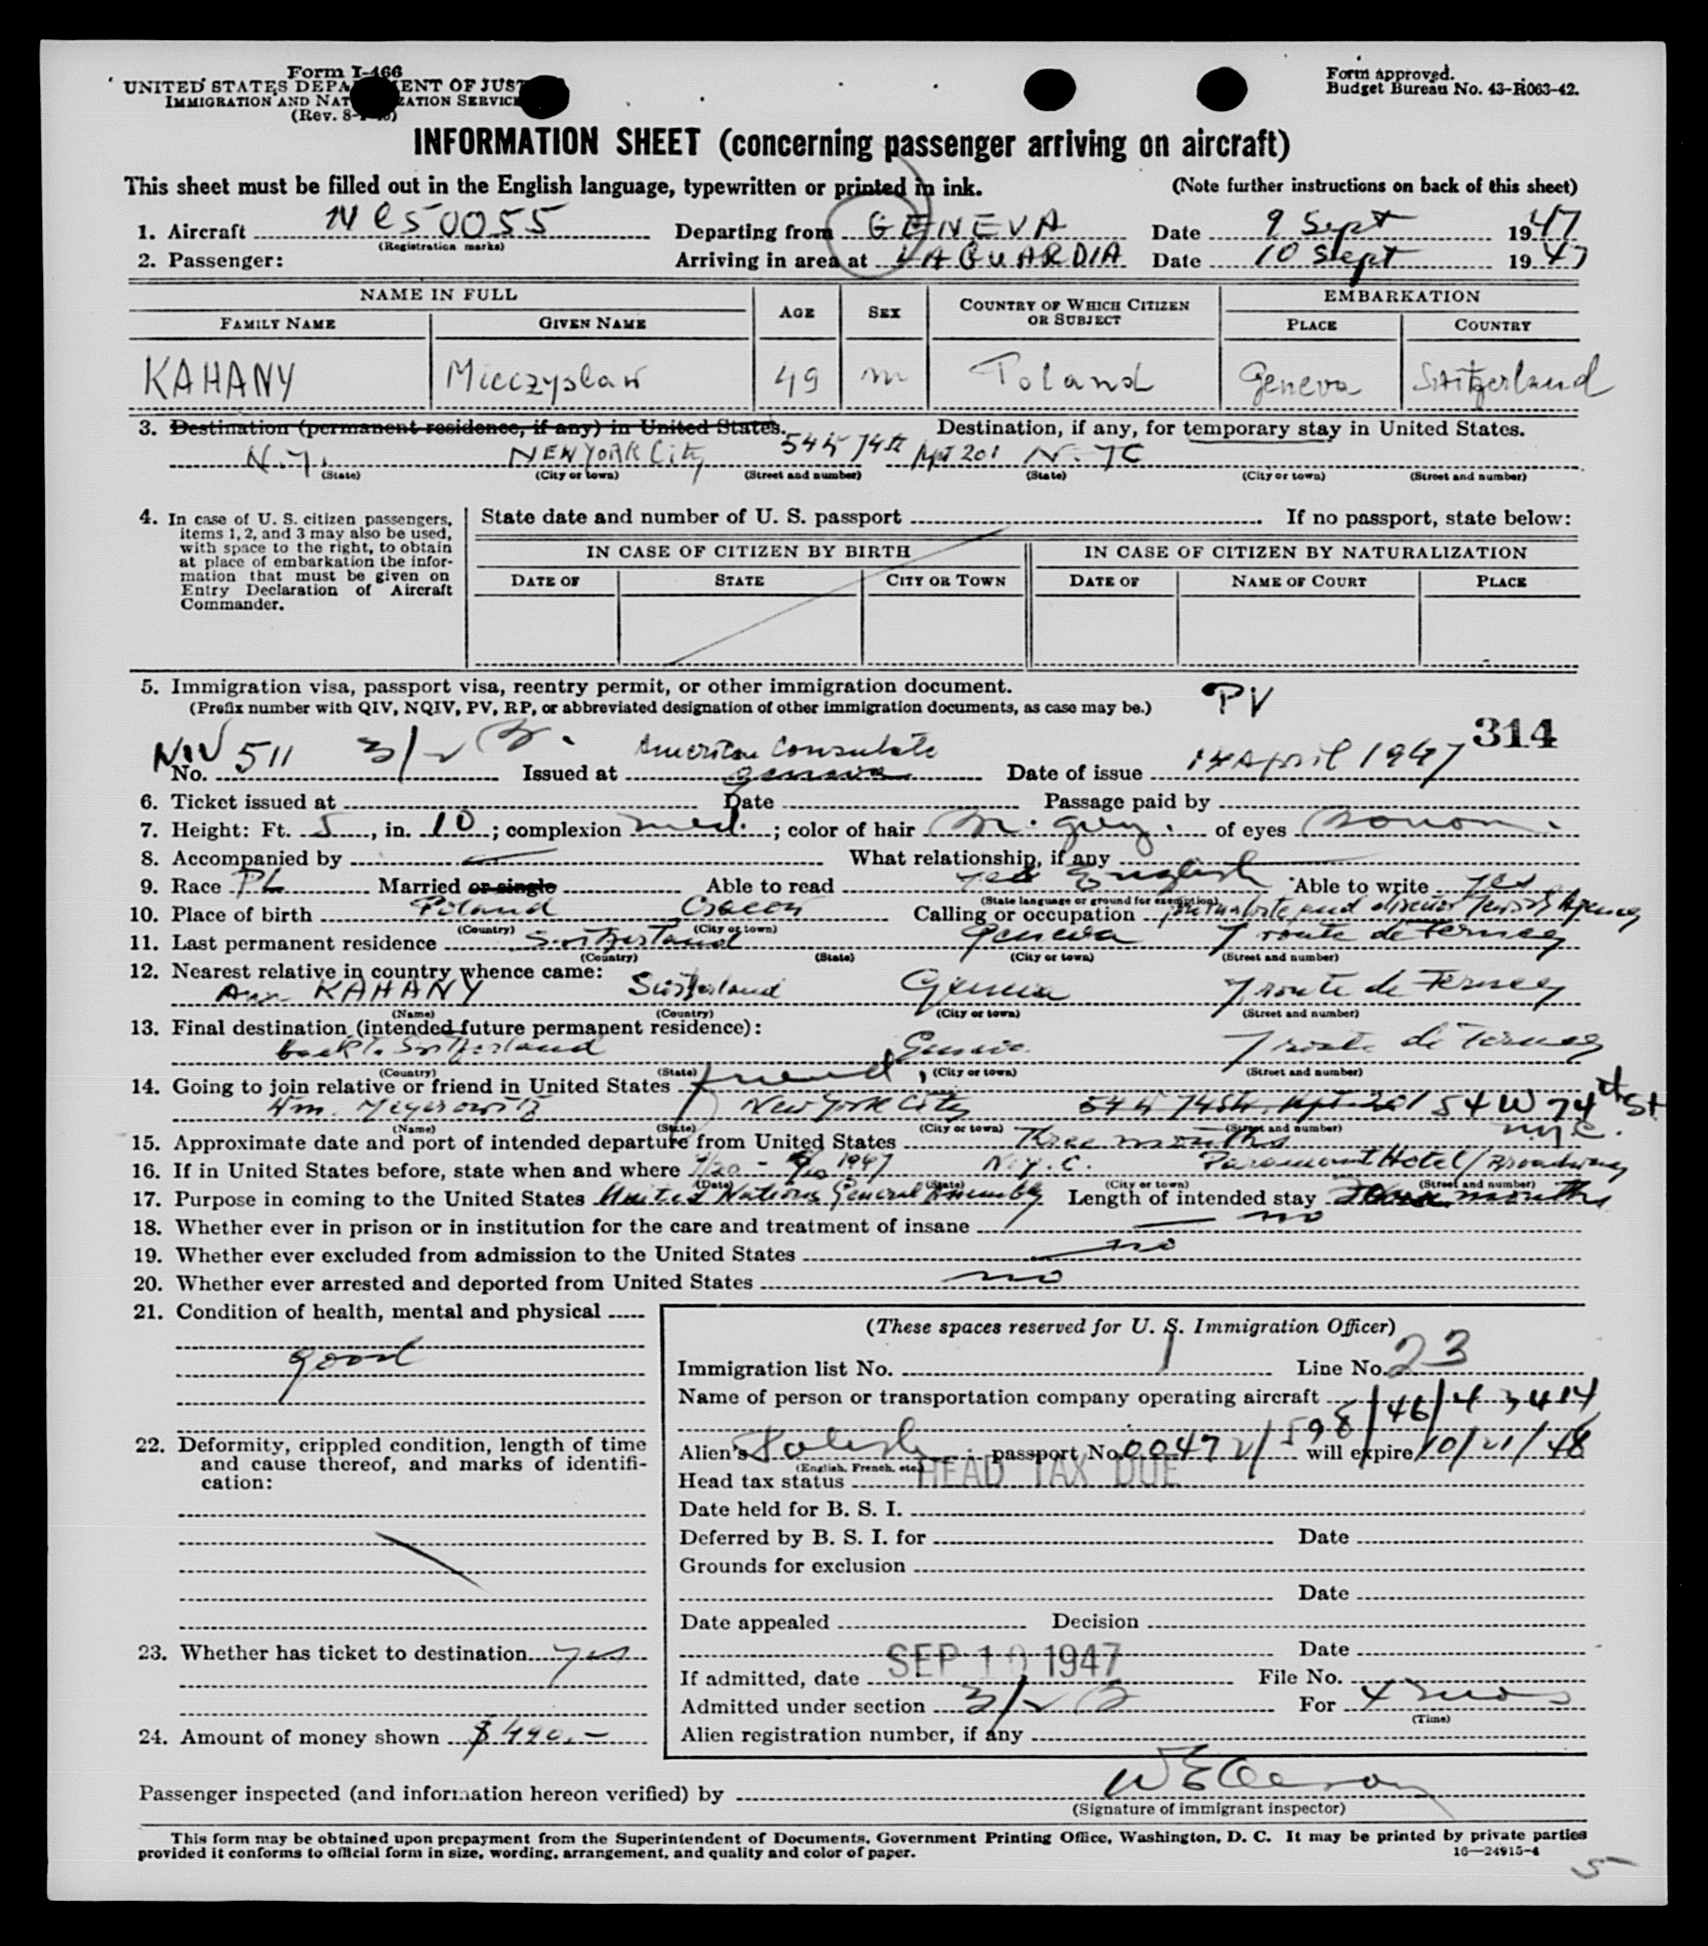 Form I-466
UNITED STATES DEPA ENT OF JUST
IMMIGRATION AND NAT ZATION SERVICE
(Rev. 8-
Form approved.
Budget Bureau No. 43-R063-42.
INFORMATION SHEET (concerning passenger arriving on aircraft)
This sheet must be filled out in the English language, typewritten or printed in ink. (Note further instructions on back of this sheet)
1. Aircraft NC50055 Departing from GENEVA Date 9 Sept 1947
(Registration marks)
2. Passenger: Arriving in area at LAGUARDIA Date 10 Sept 1947
NAME IN FULL AGE SEX COUNTRY OF WHICH CITIZEN OR SUBJECT EMBARKATION
FAMILY NAME GIVEN NAME PLACE COUNTRY
KAHANY Mieczyslaw 49 m Poland Geneva Switzerland
3. Destination (permanent residence, if any) in United States. Destination, if any, for temporary stay in United States.
N.Y. NEW YORK City 54 W 74 St Apt 201 N.Y.C
(State) (City or town) (Street and number) (State) (City or town) (Street and number)
4. In case of U. S. citizen passengers, items 1, 2, and 3 may also be used, with space to the right, to obtain at place of embarkation the information that must be given on Entry Declaration of Aircraft Commander.
State date and number of U. S. passport If no passport, state below:
IN CASE OF CITIZEN BY BIRTH IN CASE OF CITIZEN BY NATURALIZATION
DATE OF STATE CITY OR TOWN DATE OF NAME OF COURT PLACE
5. Immigration visa, passport visa, reentry permit, or other immigration document.
(Prefix number with QIV, NQIV, PV, RP, or abbreviated designation of other immigration documents, as case may be.) PV
314
NIV 511 3/2 American Consulate
No. Issued at geneva Date of issue 14 April 1947
6. Ticket issued at Date Passage paid by
7. Height: Ft. 5, in. 10; complexion med.; color of hair m. grey. of eyes brown.
8. Accompanied by What relationship, if any
9. Race PL Married or single Able to read yes English Able to write yes
(State language or ground for exemption)
10. Place of birth Poland Cracow Calling or occupation journaliste and director Jewish Agency
(Country) (City or town)
11. Last permanent residence Switzerland Geneva 7 route de Ferney
(Country) (State) (City or town) (Street and number)
12. Nearest relative in country whence came:
KAHANY Switzerland Geneva 7 route de Ferney
(Name) (Country) (City or town) (Street and number)
13. Final destination (intended future permanent residence):
back to Switzerland Geneva 7 route de Ferney
(Country) (State) (City or town) (Street and number)
14. Going to join relative or friend in United States friend,
Wm. Meyerowitz New York City 54 W 74 St. Apt 201 54 W 74th St
(Name) (State) (City or town) (Street and number) N.Y.C.
15. Approximate date and port of intended departure from United States Three months
16. If in United States before, state when and where 1947 N.Y.C. Paramount Hotel/Broadway
(Date) (State) (City or town) (Street and number)
17. Purpose in coming to the United States United Nations General Assembly Length of intended stay months
18. Whether ever in prison or in institution for the care and treatment of insane no
19. Whether ever excluded from admission to the United States no
20. Whether ever arrested and deported from United States no
21. Condition of health, mental and physical
good
22. Deformity, crippled condition, length of time and cause thereof, and marks of identification:
23. Whether has ticket to destination yes
24. Amount of money shown $ 490.-
(These spaces reserved for U. S. Immigration Officer)
Immigration list No. 1 Line No. 23
Name of person or transportation company operating aircraft
598/46/43414
Alien's Polish passport No. 00472/ will expire 10/21/48
(English, French, etc.)
Head tax status HEAD TAX DUE
Date held for B. S. I.
Deferred by B. S. I. for Date
Grounds for exclusion
Date
Date appealed Decision
Date
If admitted, date SEP 10 1947 File No.
Admitted under section 3/2 For 4 mos
(Time)
Alien registration number, if any
Passenger inspected (and information hereon verified) by
(Signature of immigrant inspector)
This form may be obtained upon prepayment from the Superintendent of Documents, Government Printing Office, Washington, D. C. It may be printed by private parties
provided it conforms to official form in size, wording, arrangement, and quality and color of paper. 16—24915-4
5